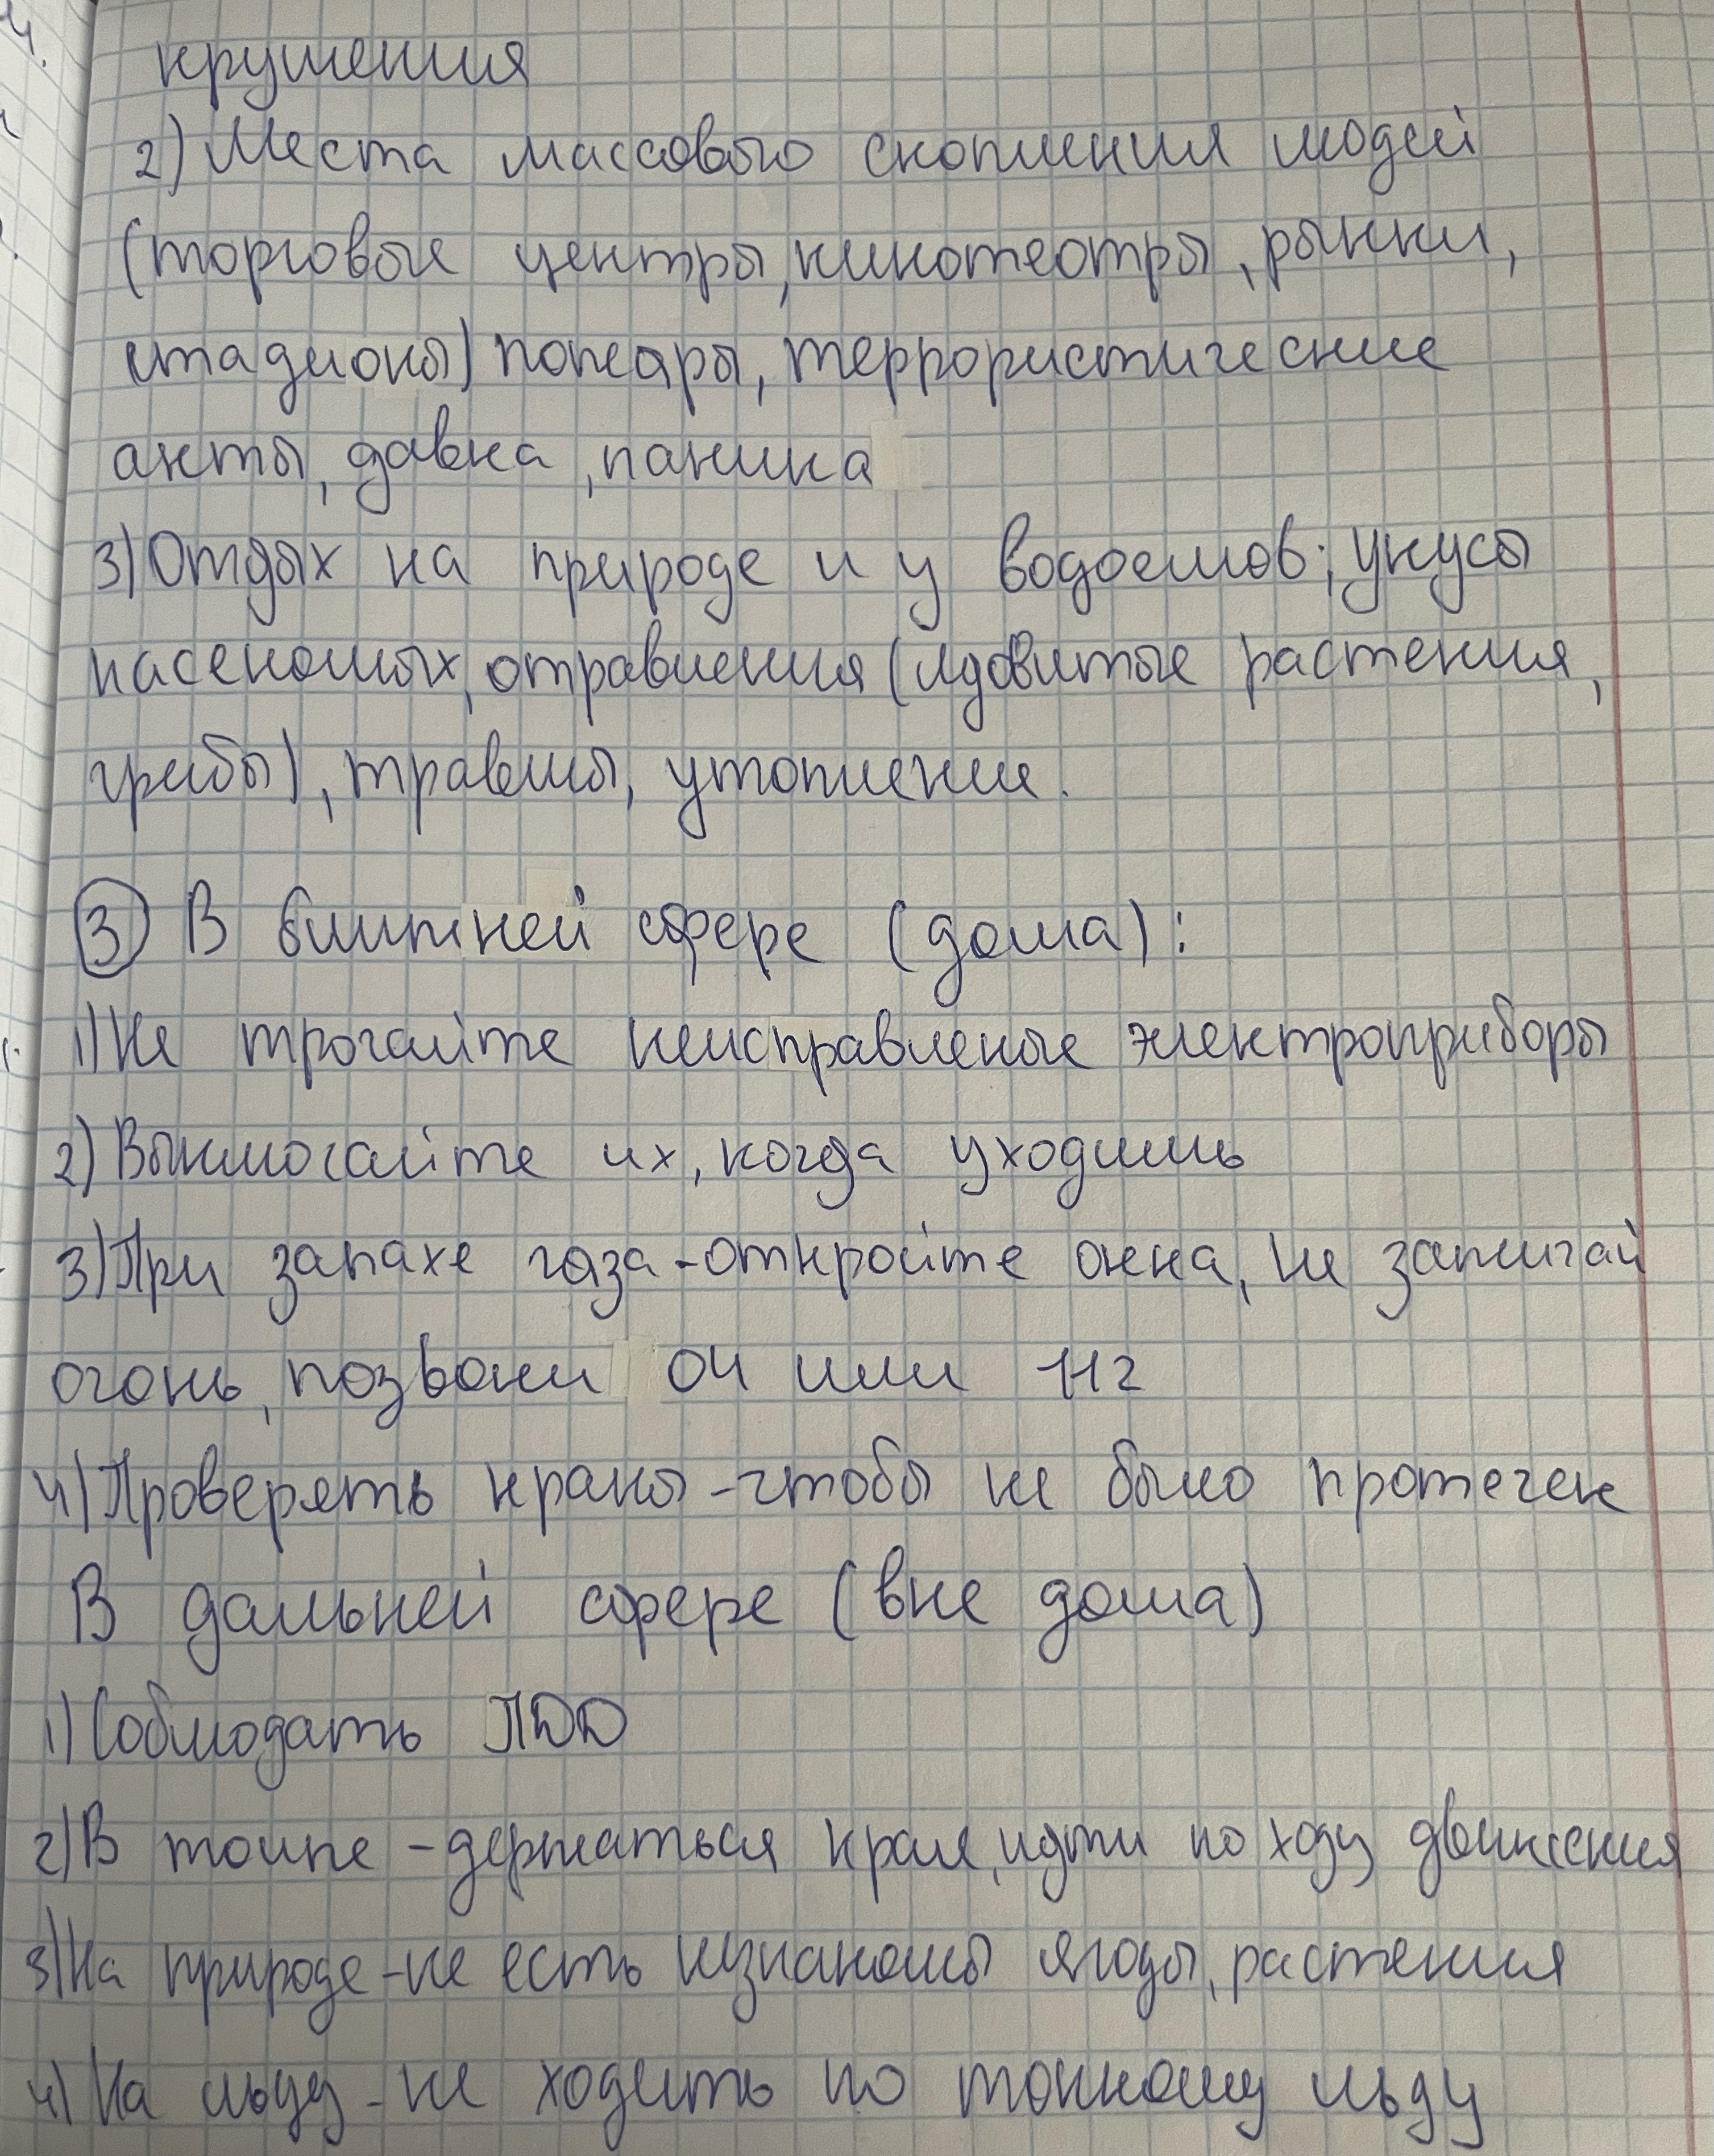 крушения
2) Места массового скопления людей
(торговые центры, кинотеотры, рынки,
стадионы) пожары, террористические
акты, давка, паника
3) Отдых на природе и у водоемов; укусы
насекомых, отравления (ядовитые растения,
грибы), травмы, утопление.
③ В ближней сфере (дома):
1) Не трогайте неисправленые электроприборы
2) Выключайте их, когда уходишь
3) При запахе газа - откройте окна, не зажигай
огонь, позвони 04 или 112
4) Проверять краны - чтобы не было протечек
В дальней сфере (вне дома)
1) Соблюдать ПДД
2) В толпе - держаться края, идти по ходу движения
3) На природе - не есть ягоды, растения
4) На льду - не ходить по тонкому льду